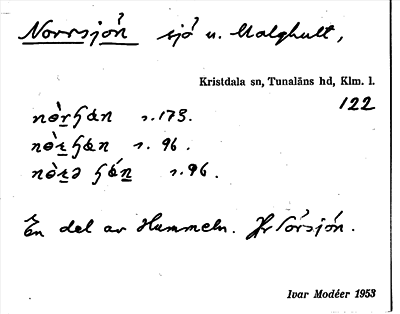 Norrsjön sjö u. Malghult,
Kristdala sn, Tunaläns hd, Klm. l.
122
s. 173.
s. 96.
s. 96.
En del av Hummeln. Jfr Sörsjön.
Ivar Modéer 1953